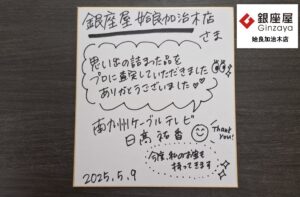 銀座屋 姶良加治木店
さま
思い出の詰まった品を
プロに査定していただきました
ありがとうございました
南九州ケーブルテレビ
日高 祐香
Thank you!
今度、私のお宝も
持ってきます
2025.5.9
銀座屋
Ginzaya
姶良加治木店